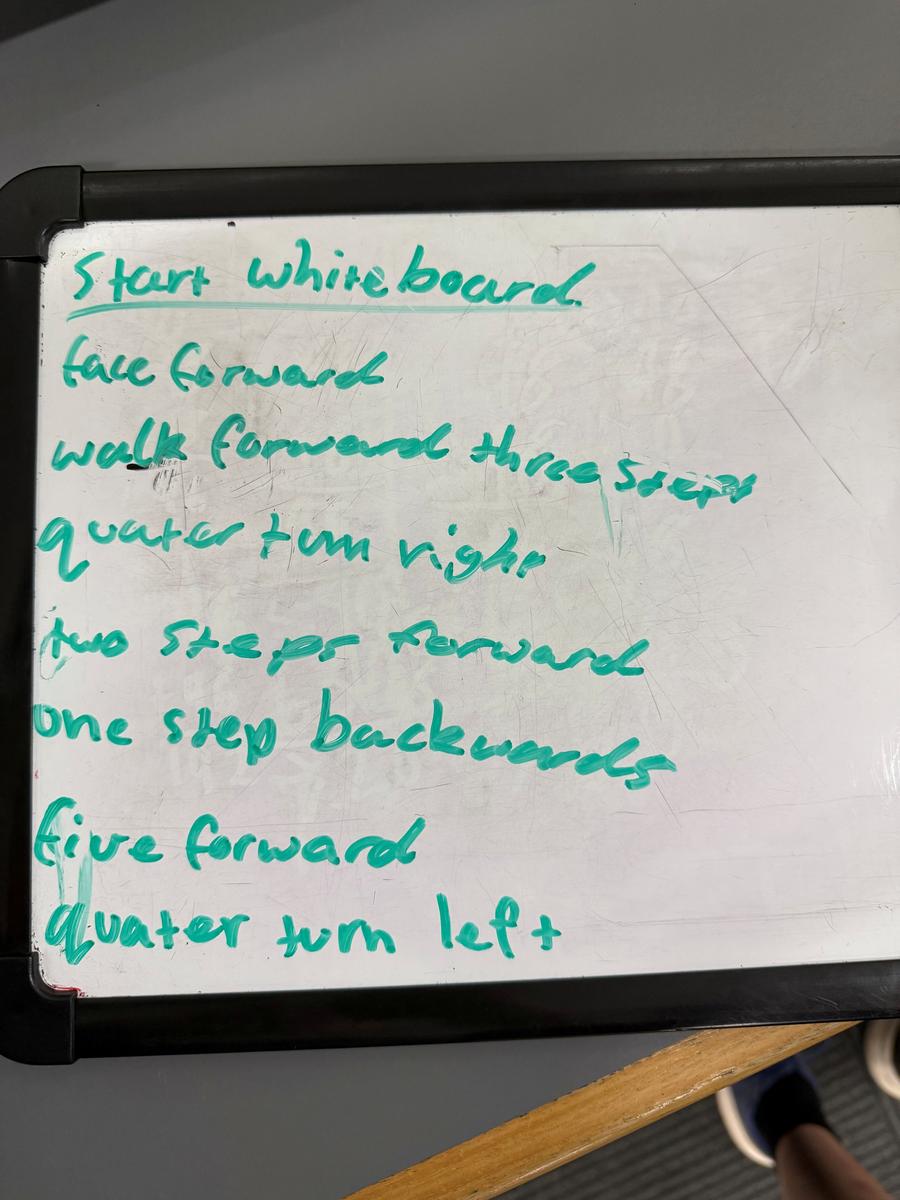 Start whiteboard.
face forward
walk forward three steps
quater turn right
two steps forward
one step backwards
five forward
quater turn left